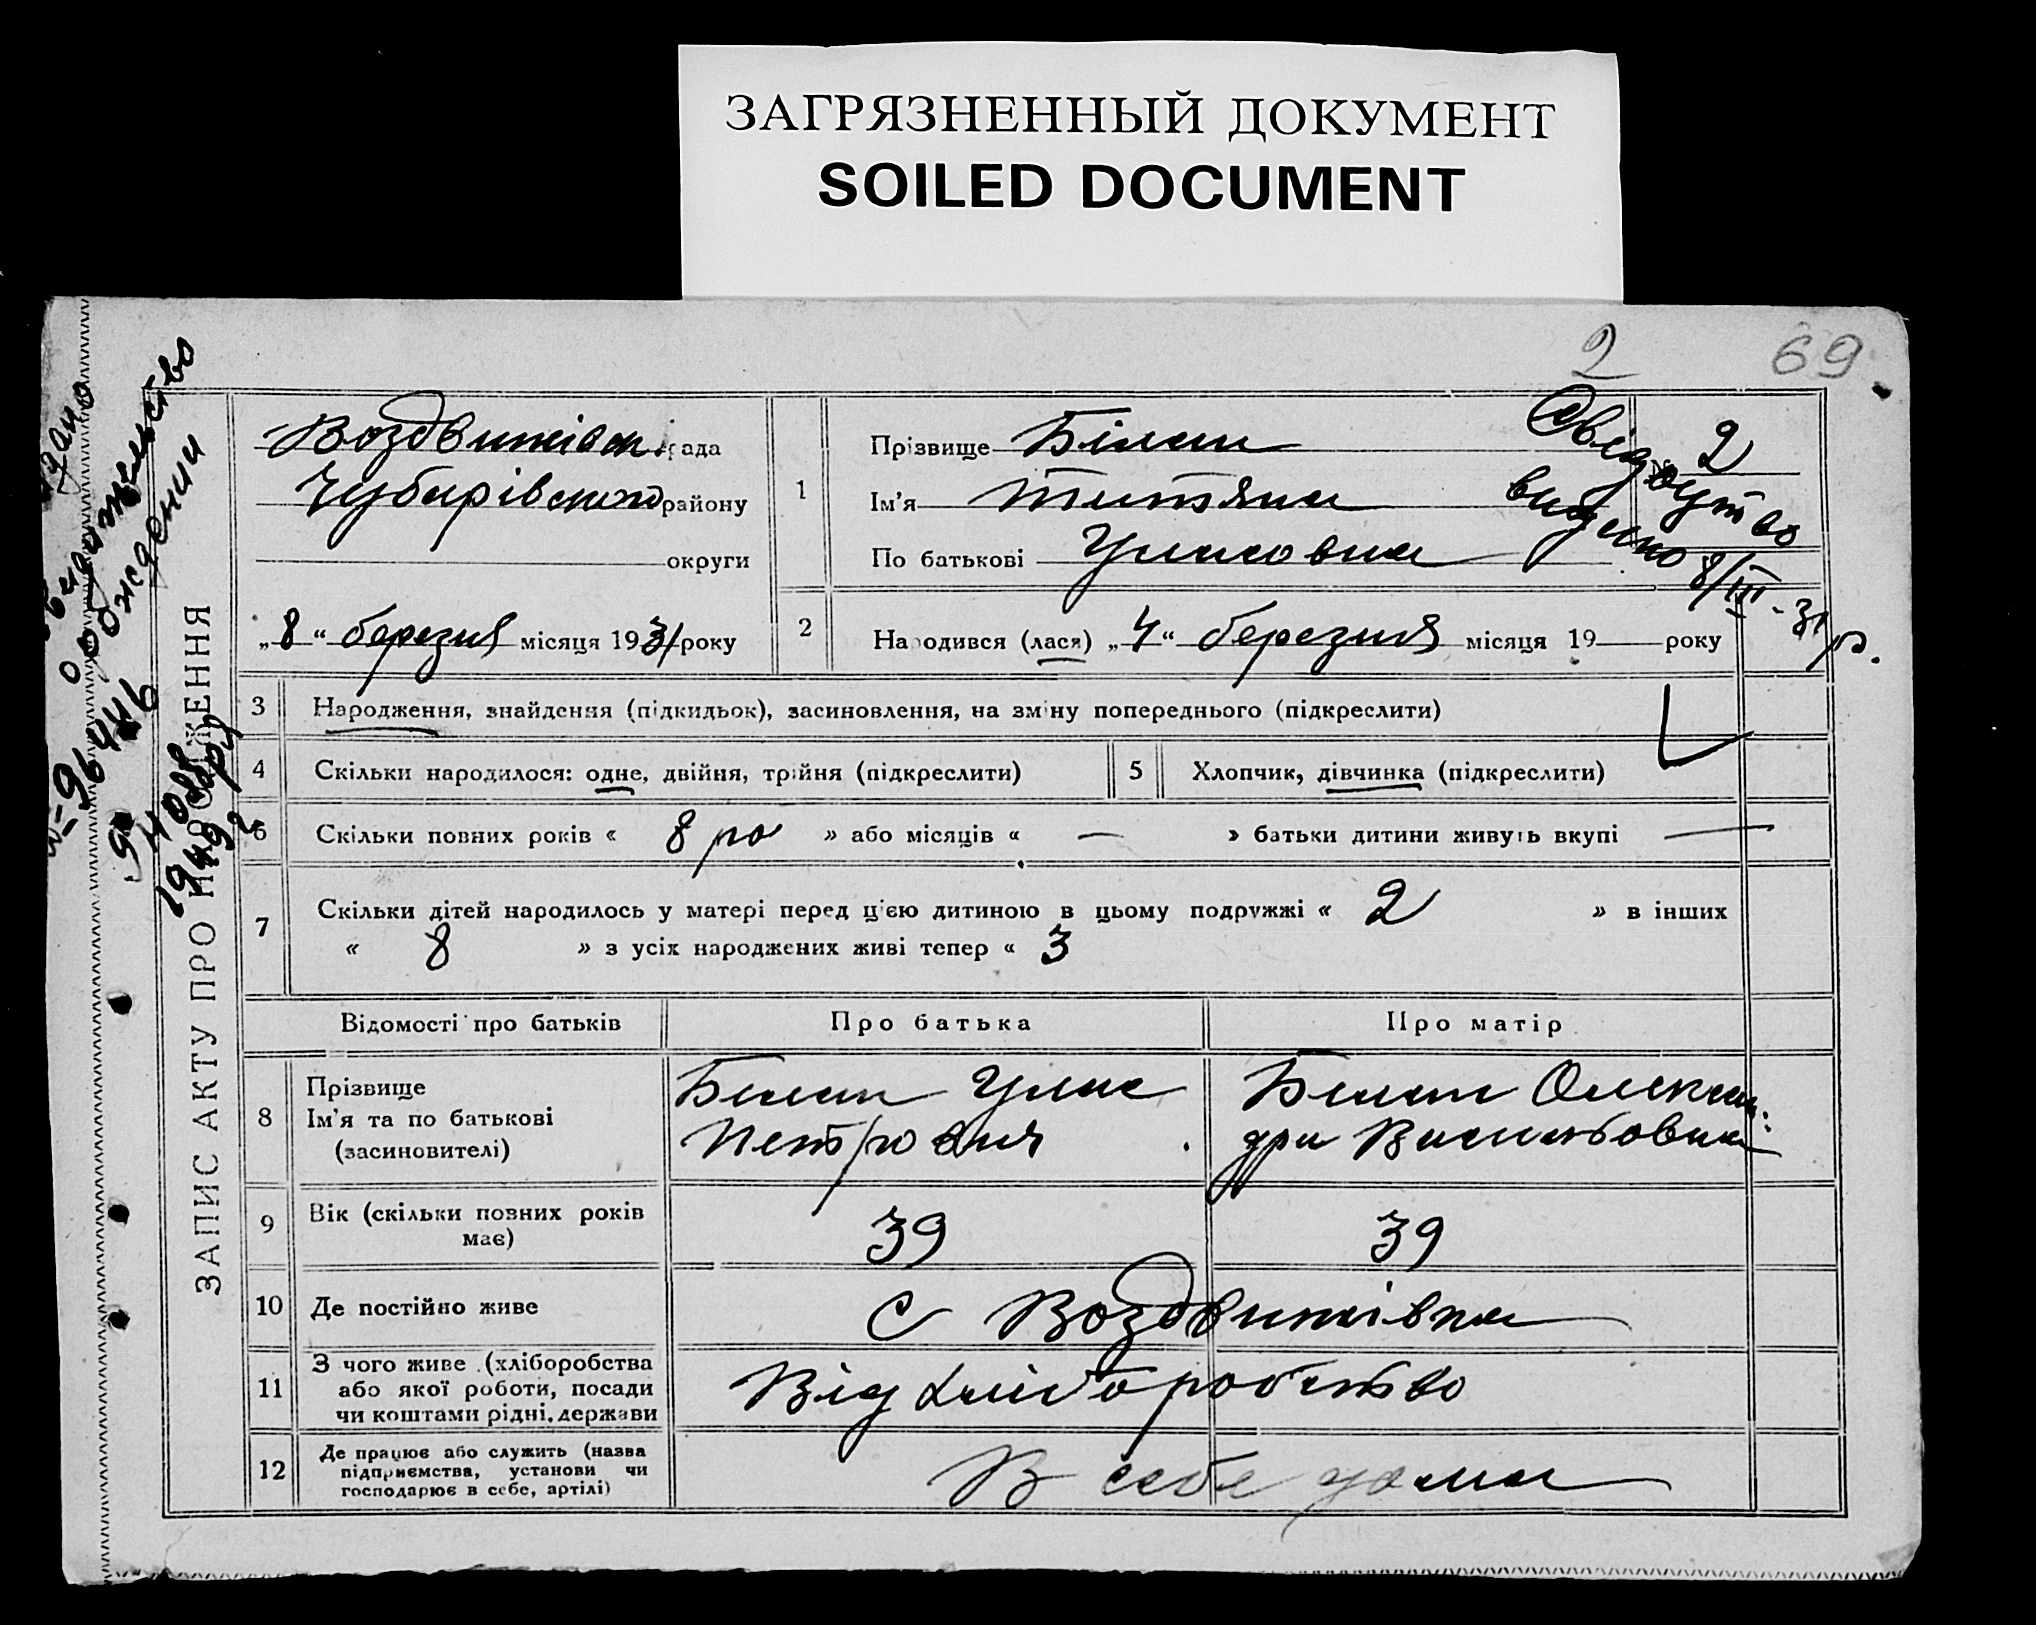 ЗАГРЯЗНЕННЫЙ ДОКУМЕНТ
SOILED DOCUMENT
2 69
ЗАПИС АКТУ ПРО НАРОДЖЕННЯ
Воздвижівськ рада
Чубарівського району
округи
„8“ березня місяця 1931 року
1 Прізвище Білан
Ім'я Титяна
По батькові Уласовна
№ 2
Свідоцтво
видано 8/III-31 р.
2 Народився (лася) „4“ березня місяця 19 року
3 Народження, знайдення (підкидьок), засиновлення, на зміну попереднього (підкреслити)
4 Скільки народилося: одне, двійня, трійня (підкреслити) 5 Хлопчик, дівчинка (підкреслити)
6 Скільки повних років « 8 ро » або місяців « — » батьки дитини живуть вкупі —
7 Скільки дітей народилось у матері перед цією дитиною в цьому подружжі « 2 » в інших
« 8 » з усіх народжених живі тепер « 3
Відомості про батьків Про батька Про матір
8 Прізвище
Ім'я та по батькові
(засиновителі)
Билан Улас
Петровия
Билан Олексан-
дра Васильовна
9 Вік (скільки повних років
має)
39 39
10 Де постійно живе
с Воздвижівка
11 З чого живе (хліборобства
або якої роботи, посади
чи коштами рідні, держави
Від хліборобство
12 Де працює або служить (назва
підприємства, установи чи
господарює в себе, артілі)
В себе дома
свидетельство
о рождении